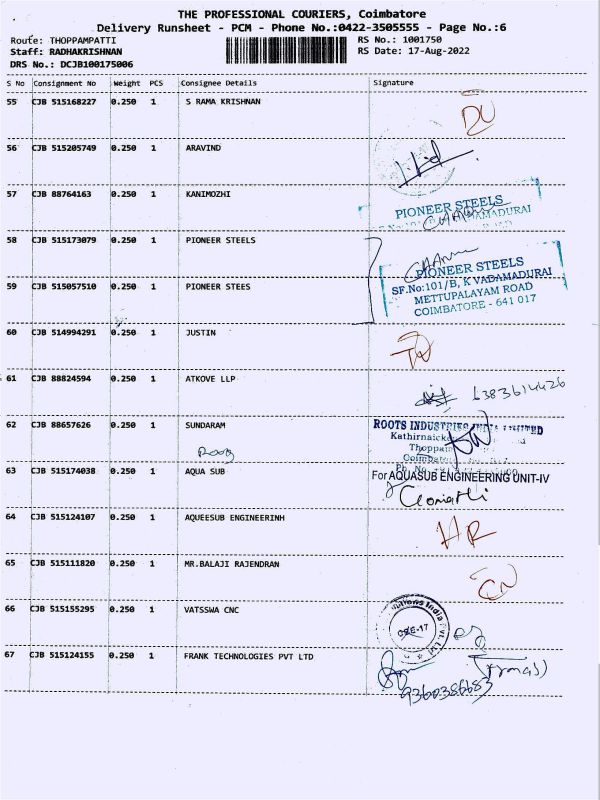 THE PROFESSIONAL COURIERS, Coimbatore
Delivery Runsheet - PCM - Phone No.:0422-3505555 - Page No.:6
Route: THOPPAMPATTI RS No.: 1001750
Staff: RADHAKRISHNAN RS Date: 17-Aug-2022
DRS No.: DCJB100175006
S No Consignment No Weight PCS Consignee Details Signature
55 CJB 515168227 0.250 1 S RAMA KRISHNAN
56 CJB 515205749 0.250 1 ARAVIND
57 CJB 88764163 0.250 1 KANIMOZHI
PIONEER STEELS
58 CJB 515173079 0.250 1 PIONEER STEELS
PIONEER STEELS
SF.No:101/B, K VADAMADURAI
59 CJB 515057510 0.250 1 PIONEER STEES
METTUPALAYAM ROAD
COIMBATORE - 641 017
60 CJB 514994291 0.250 1 JUSTIN
61 CJB 88824594 0.250 1 ATKOVE LLP
6383614426
62 CJB 88657626 0.250 1 SUNDARAM
ROOTS INDUSTRIES INDIA LIMITED
63 CJB 515174038 0.250 1 AQUA SUB
For AQUASUB ENGINEERING UNIT-IV
64 CJB 515124107 0.250 1 AQUEESUB ENGINEERINH
HR
65 CJB 515111820 0.250 1 MR.BALAJI RAJENDRAN
66 CJB 515155295 0.250 1 VATSSWA CNC
67 CJB 515124155 0.250 1 FRANK TECHNOLOGIES PVT LTD
9360386683